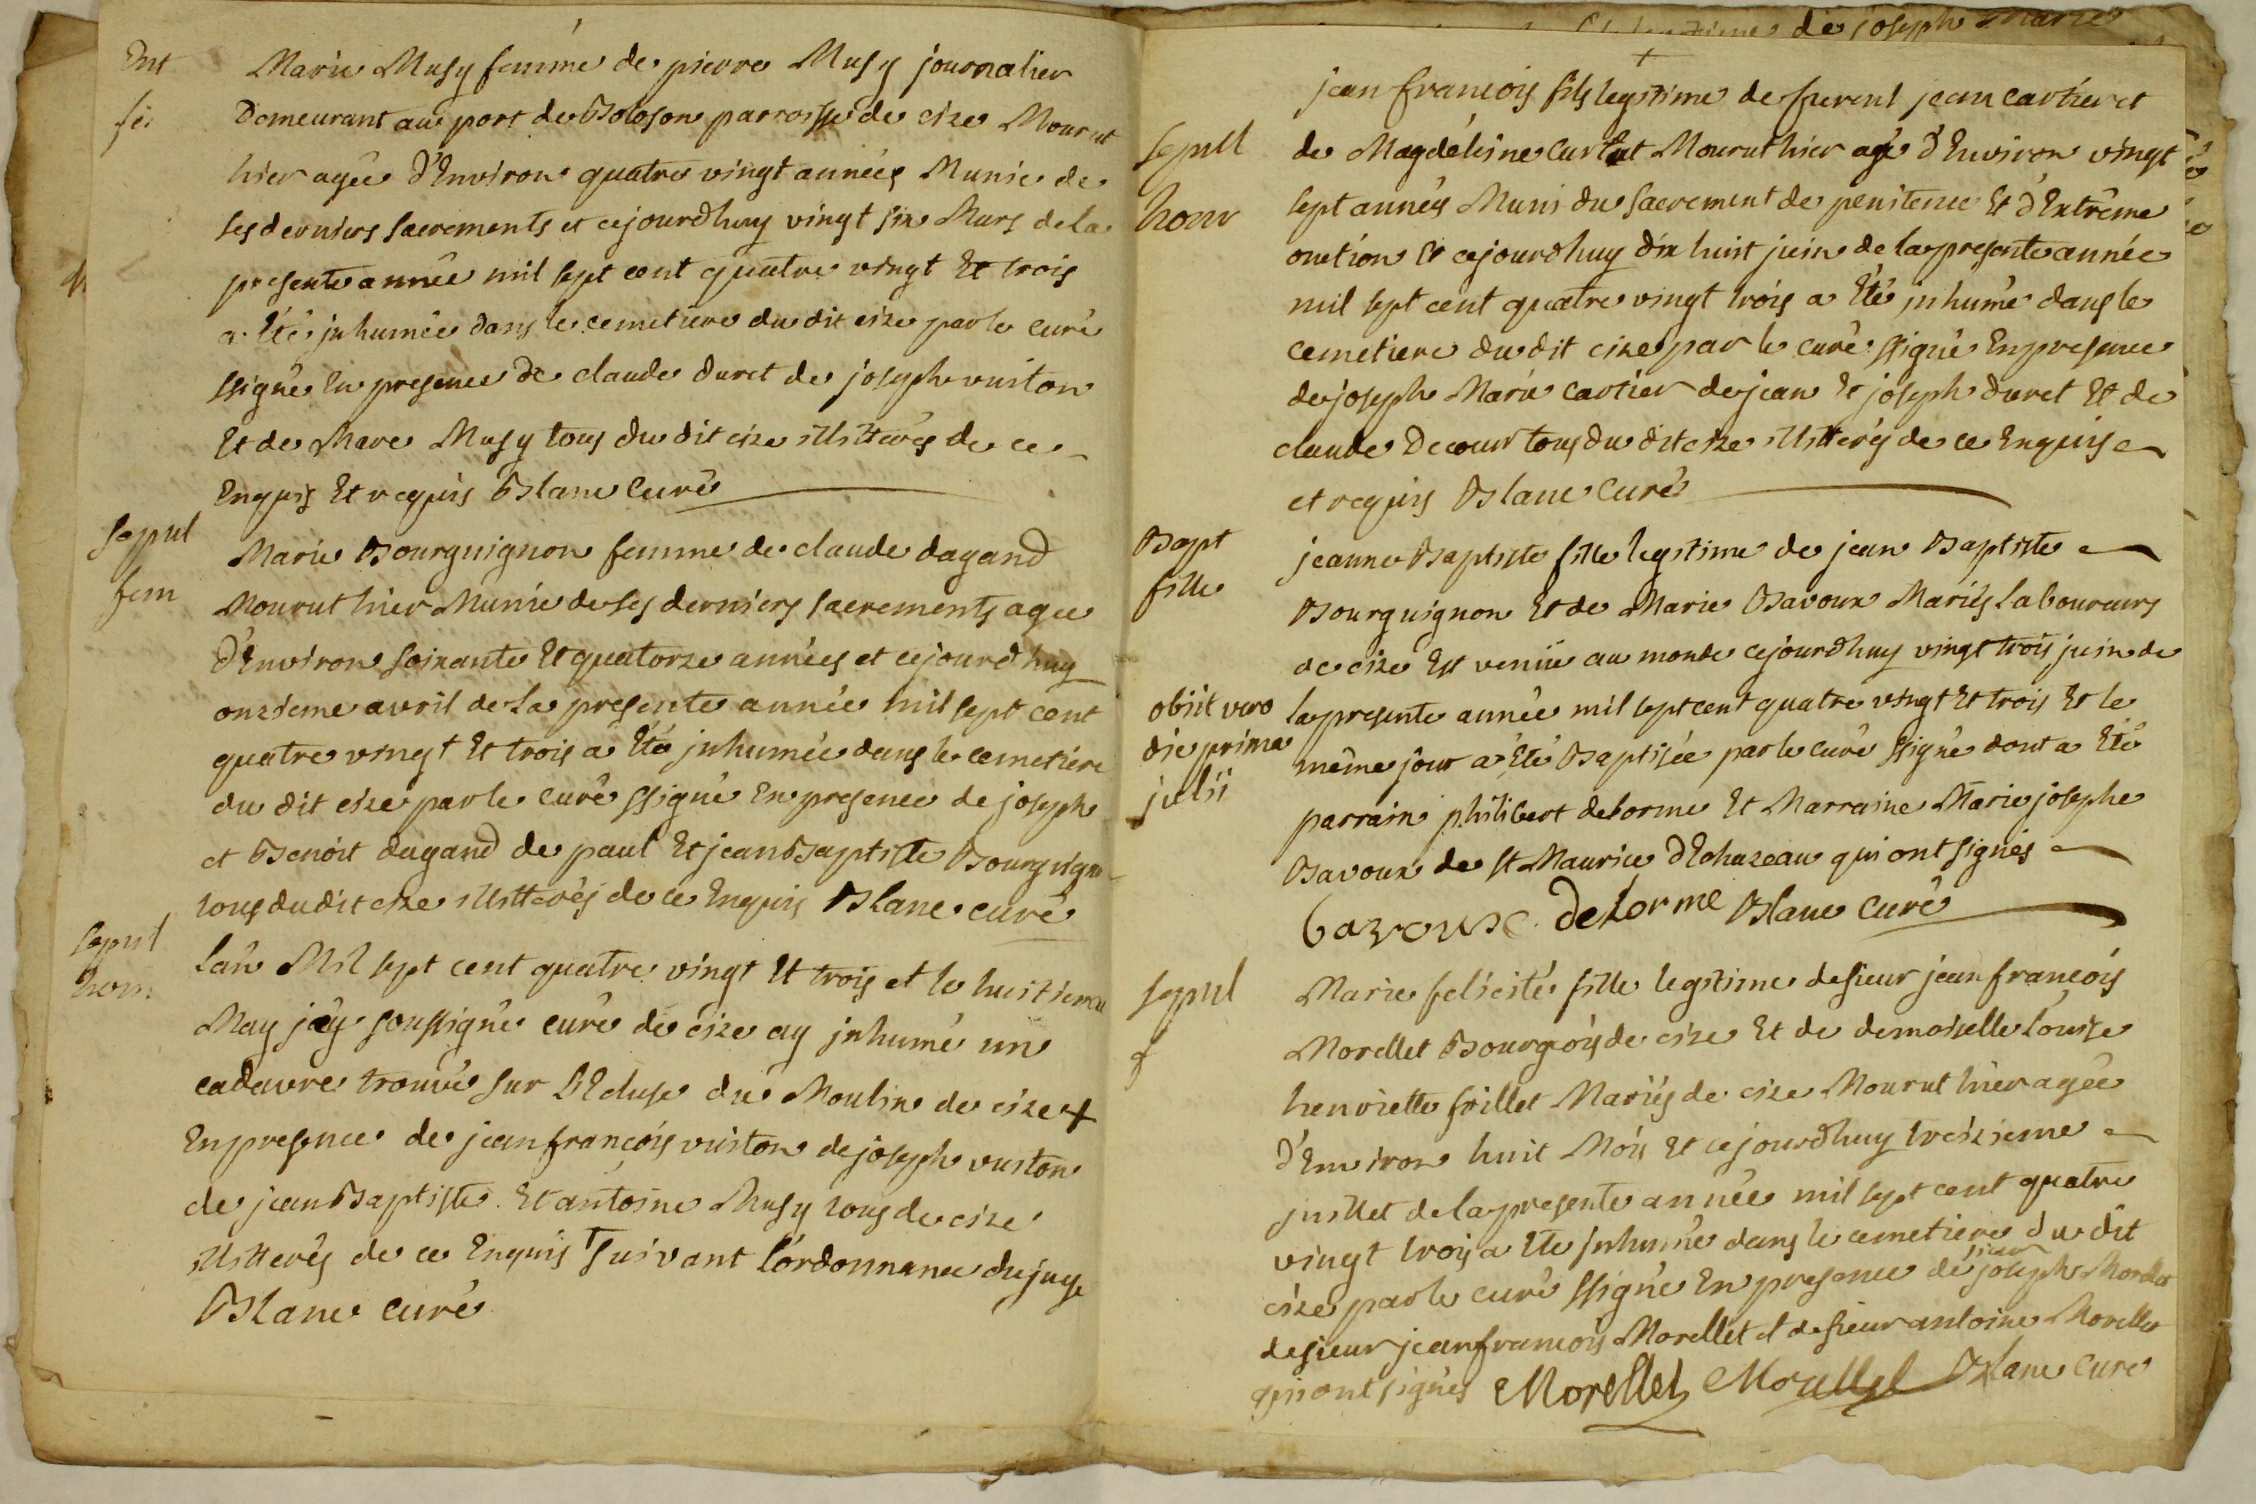 Ent
fe
Marie Musy femme de pierre Musy journalier
Demeurant au port de Boloson parroisse de cize Mourut
hier agée d'Environ quatre vingt années Munie de
ses derniers sacrements et cejourdhuy vingt six Mars de la
presente année mil sept cent quatre vingt Et trois
a Eté jnhumée dans le cemetiere du dit cize par le curé
ssigné En presence de claude duret de joseph vuiton
Et de Marc Musy tous du dit cize illitterés de ce
Enquis Et requis Blanc Curé
Sepul
fem
Marie Bourguignon femme de claude dagand
Mourut hier Munie de ses derniers sacrements agee
d'Environ soixante Et quatorze années et cejourdhuy
onzieme avril de La presente année mil sept cent
quatre vingt Et trois a Eté jnhumée dans le cemetiere
du dit cize par le curé ssigné En presence de joseph
et Benoit dagand de paul Et jean Baptiste Bourguign
tous du dit cize illitterés de ce Enquis Blanc curé
Sepul
hom
Lan Mil sept cent quatre vingt Et trois et le huitieme
May jay soussigné curé de cize ay jnhumé un
cadavre trouvé sur L'Ecluse du Moulin de cize +
En presence de jean francois vuiton de joseph vuiton
de jean Baptiste Et antoine Musy tous de cize
illitterés de ce Enquis + suivant l'ordonnance du juge
Blanc curé
de joseph Marie
+
jean francois fils legitime de furent jean cartier et
Sepull
de Magdeleine Curtet Mourut hier agé d'Environ vingt
hom
sept années Muni du sacrement de penitence Et d'Extrême
onction Et cejourdhuy dix huit juin de la presente année
mil sept cent quatre vingt trois a Eté jnhumé dans le
cemetiere du dit cize par le curé ssigné En presence
de joseph Marie cartier de jean Et joseph duret Et de
claude Decour tous du dit cize illitterés de ce Enquis
et requis Blanc Curé
Bapt
fille
jeanne Baptiste fille legitime de jean Baptiste
Bourguignon Et de Marie Bavoux Mariés Laboureurs
de cize Est venüe au monde cejourdhuy vingt trois juin de
obiit vero
die prima
julii
la presente année mil sept cent quatre vingt Et trois Et le
même jour a Eté Baptisée par le curé ssigné dont a Eté
parrain philibert delorme Et Marraine Marie josephe
Bavoux de st Maurice d'Echazeau qui ont signés
bavoux delorme Blanc Curé
Sepul
f
Marie felicité fille legitime de sieur jean francois
Morellet Bourgeois de cize Et de demoiselle Louise
henriette frillet Mariés de cize Mourut hier agée
d'Environ huit Mois Et cejourdhuy treizieme
juillet de la presente année mil sept cent quatre
vingt trois a Eté jnhumée dans le cemetiere du dit
cize par le curé ssigné En presence de sieur joseph Morellet
de sieur jean francois Morellet et de sieur antoine Morellet
qui ont signés Morellet Morellet Blanc Curé